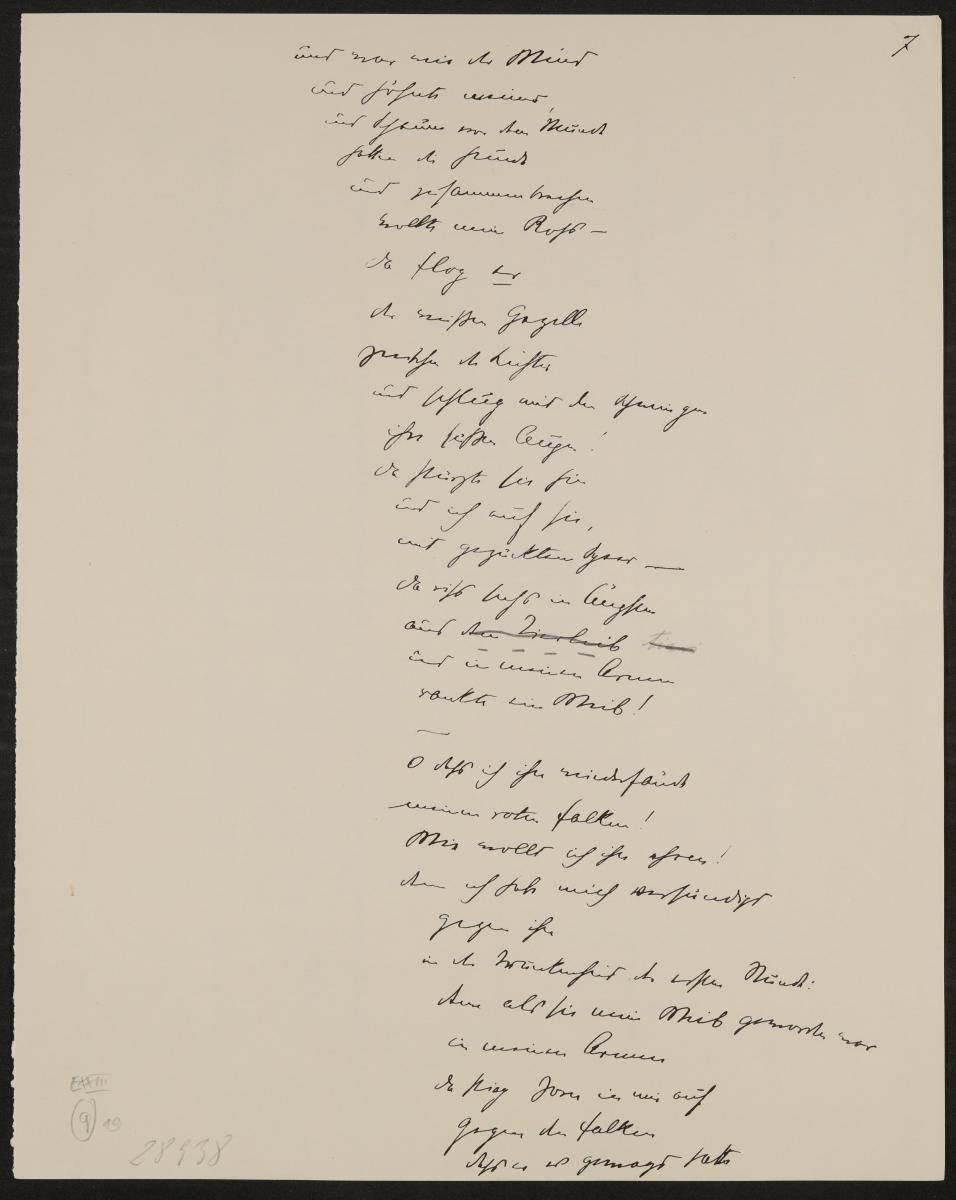 7
und war wie der Wind
und höhnte meiner,
und Schaum vor dem Munde
hatten die Hunde
und zusammenbrechen
wollte mein Ross –
da flog er
der weissen Gazelle
zwischen die Lichter
und schlug mit den Schwingen
ihre süssen Augen!
da stürzte sie hin
und ich auf sie,
mit gezücktem Speer —
da riss sichs in Ängsten
aus dem Tierleib
und in meinen Armen
rankte ein Weib!
—
O dass ich ihn wiederfände
meinen roten Falken!
Wie wollt ich ihn ehren!
denn ich hab mich versündigt
gegen ihn
in der Trunkenheit der ersten Stunde:
denn als sie mein Weib geworden war
in meinen Armen
da stieg Zorn in mir auf
gegen den Falken
dass er es gewagt hatte
9 19
28938